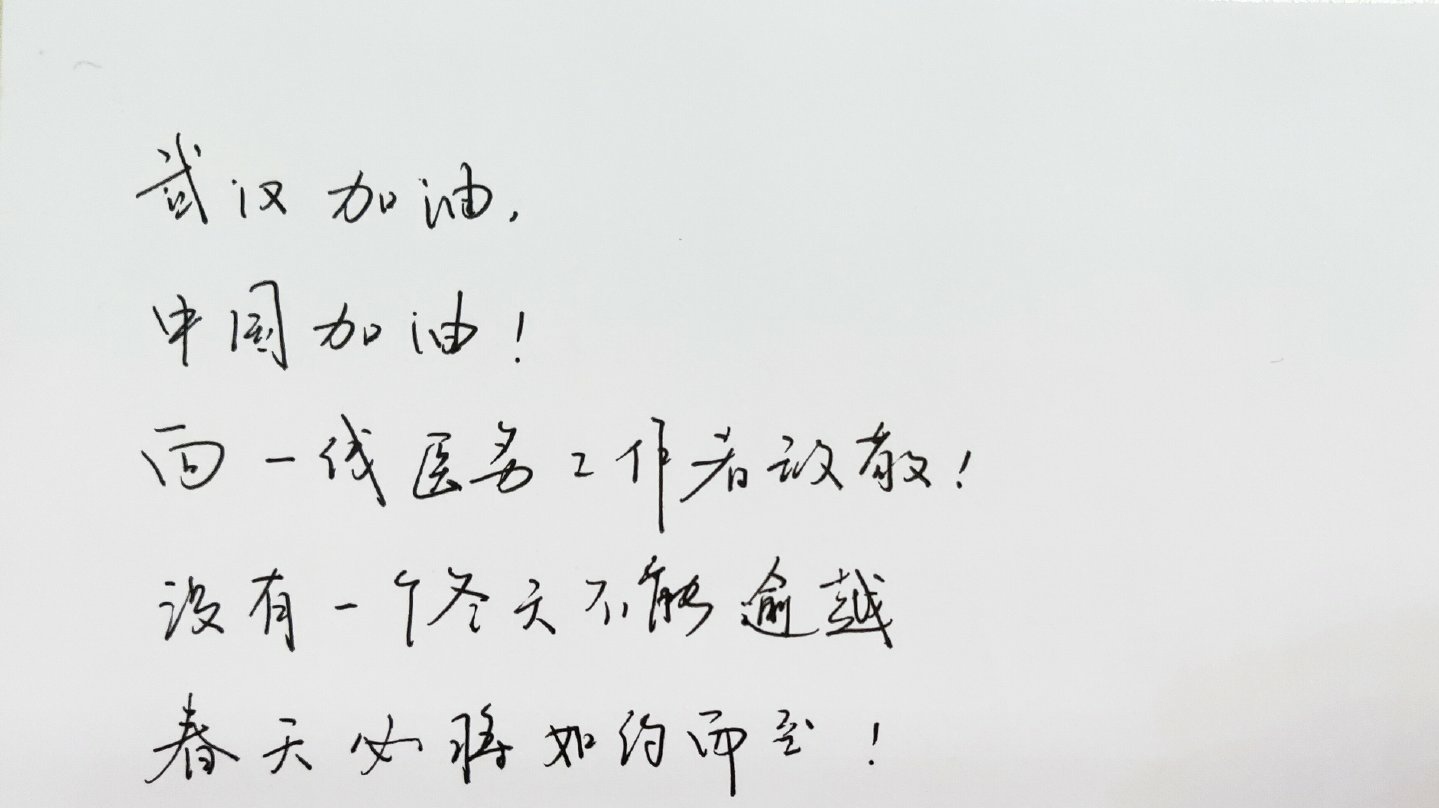 武汉加油,
中国加油!
向一线医务工作者致敬!
没有一个冬天不能逾越
春天必将如约而至!